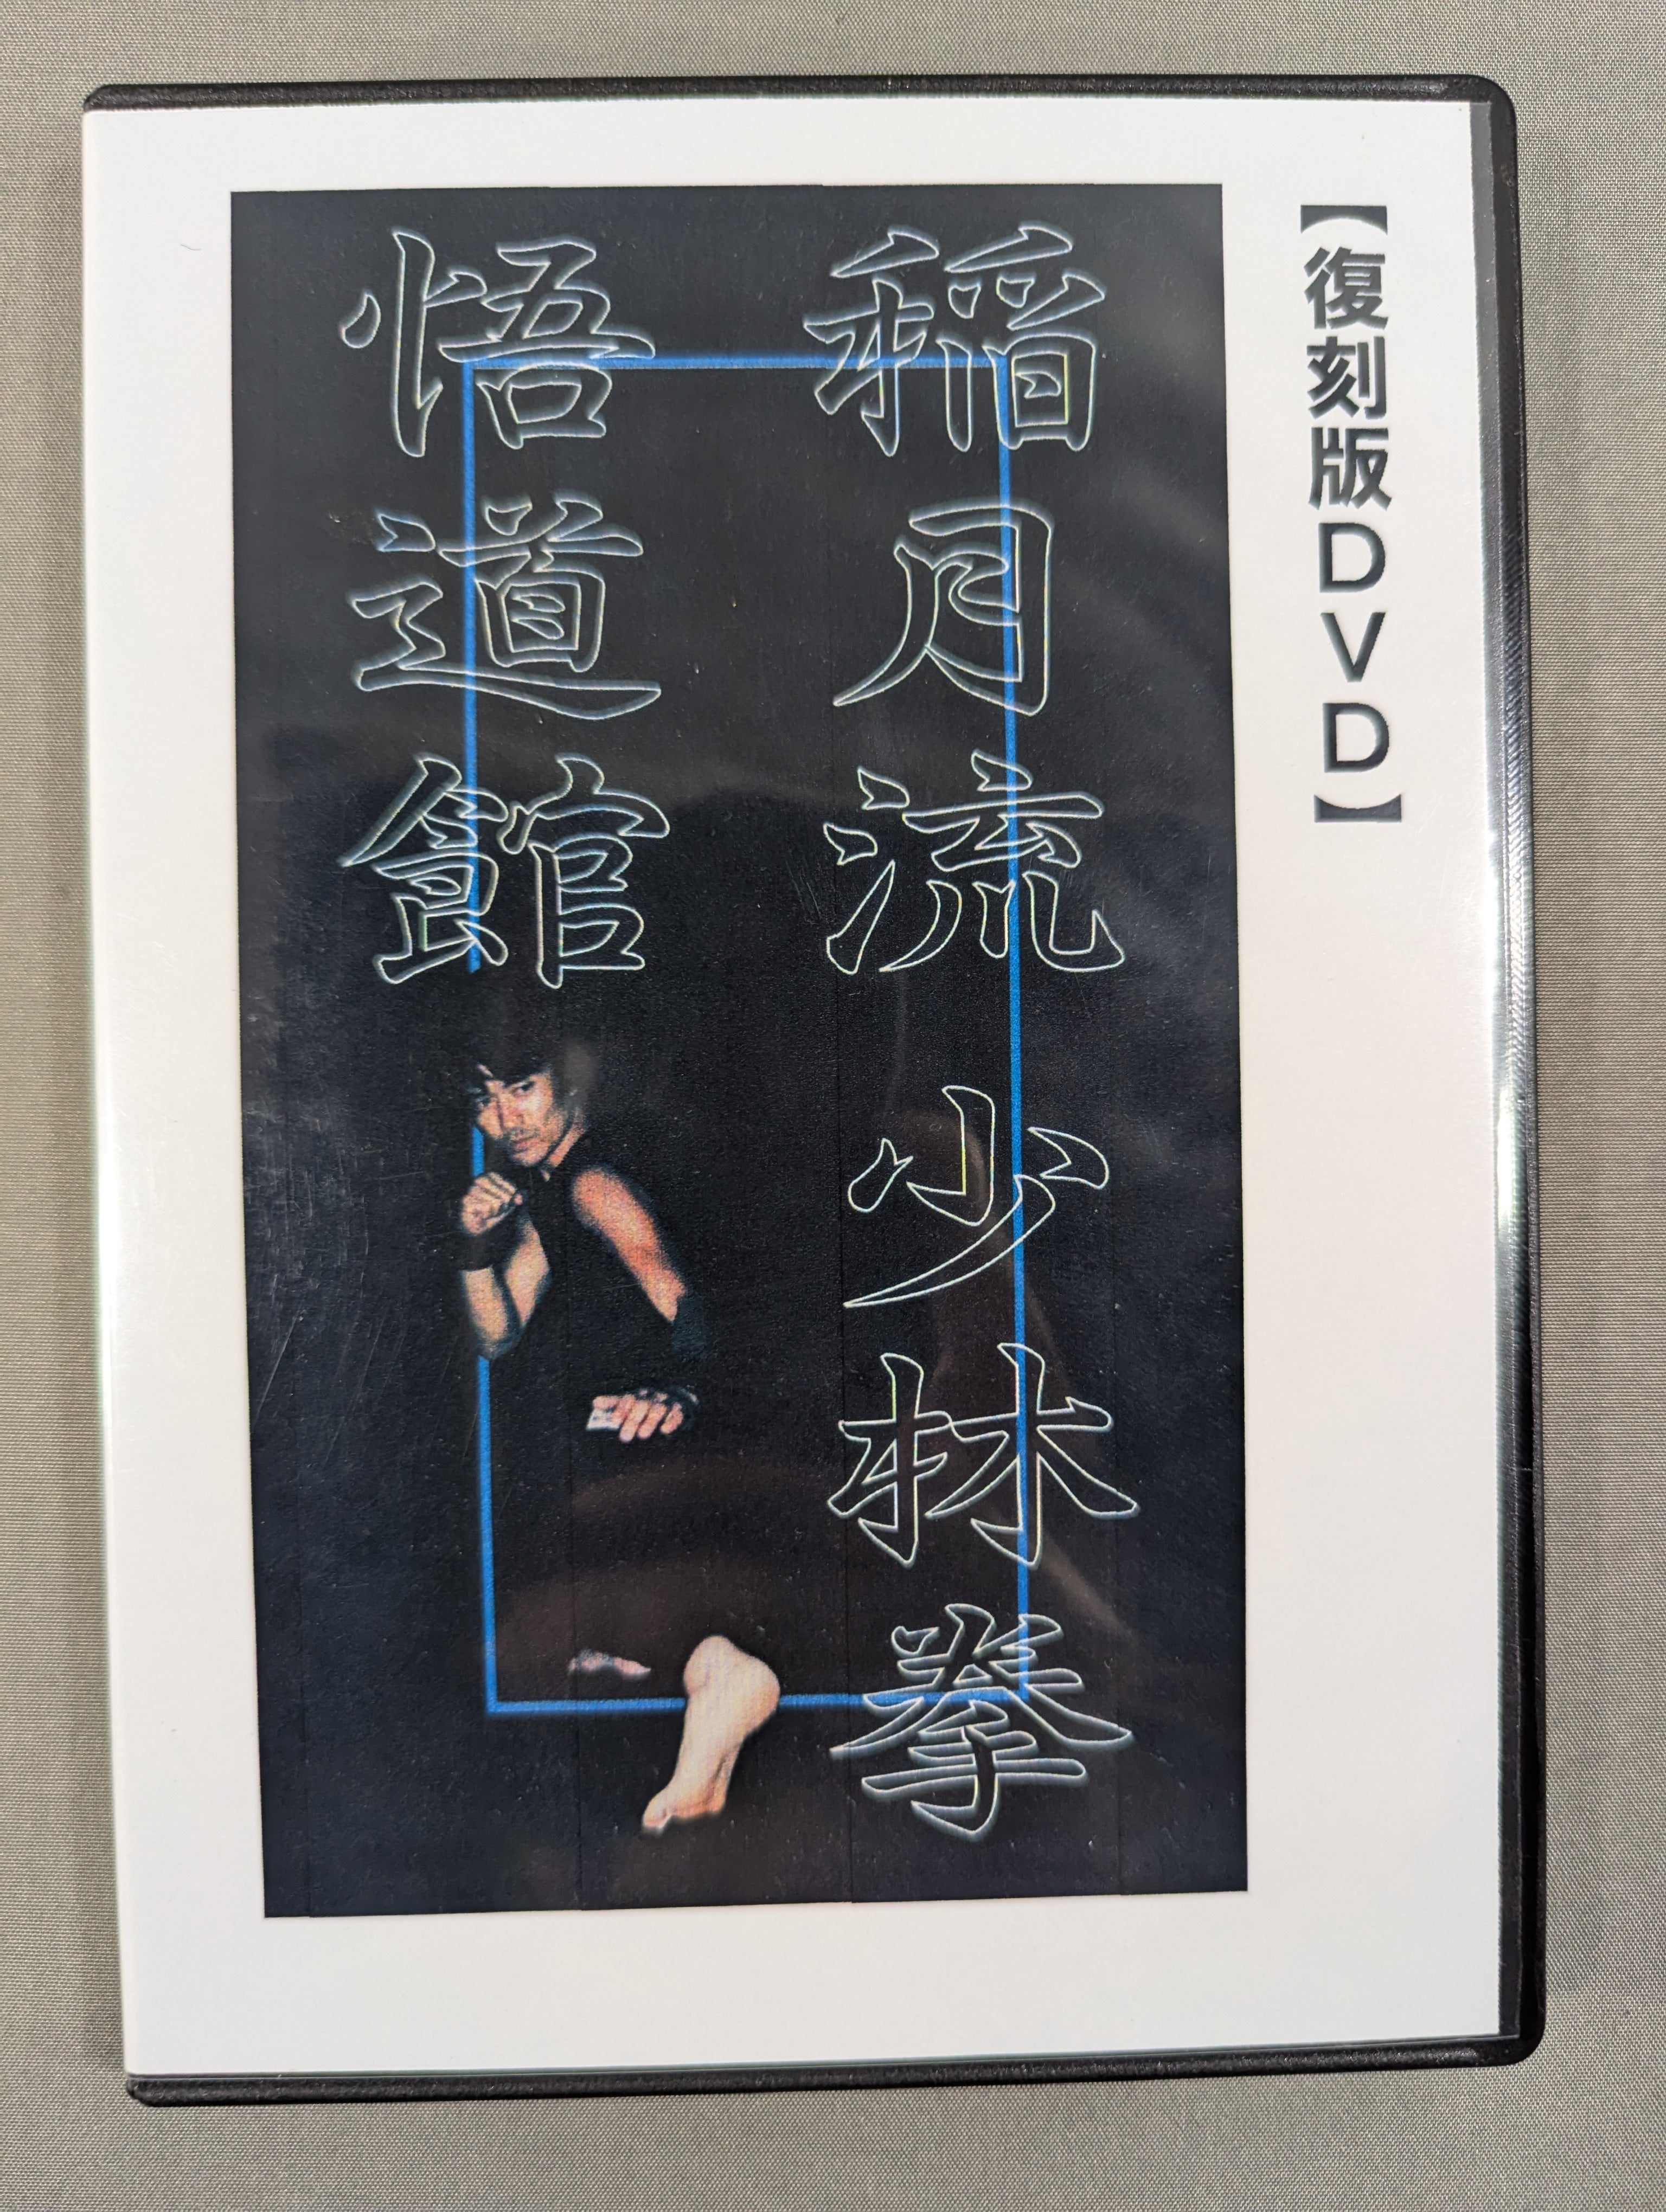 【復刻版DVD】
稲月流少林拳
悟道館